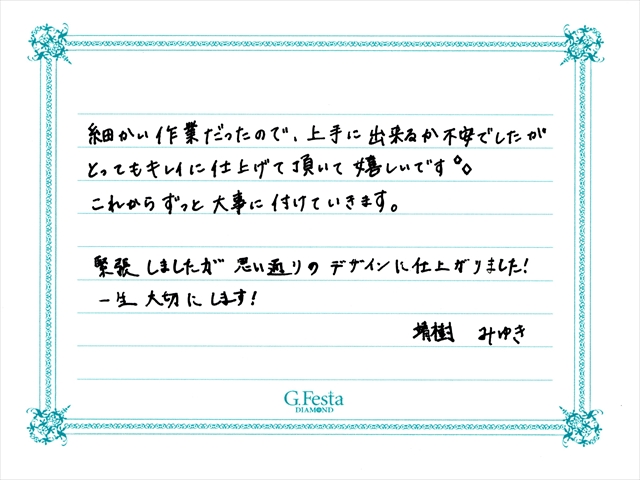 細かい作業だったので、上手に出来るか不安でしたが
とってもキレイに仕上げて頂いて嬉しいです
これからずっと大事に付けていきます。
緊張しましたが思い通りのデザインに仕上がりました!
一生大切にします!
靖樹 みゆき
G.Festa
DIAMOND